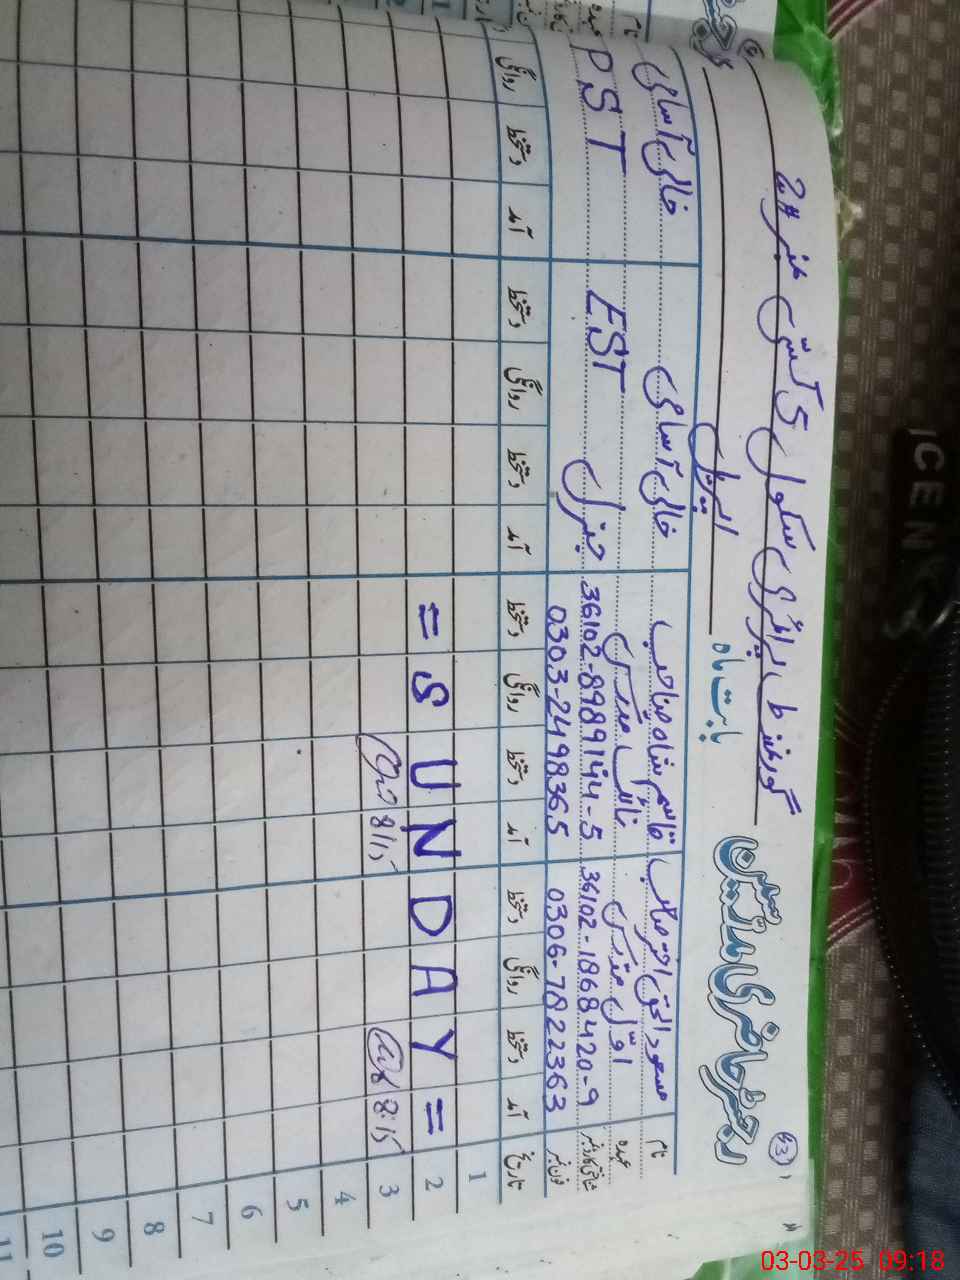 53
رجسٹر حاضری مدرسین
گورنمنٹ پرائمری سکول
نمبر #2
بابت ماہ
نام مسعود الحق اختر صاحب قاسم شاہ صاحب خالی آسامی خالی آسامی
عہدہ اوّل مدرس نائب مدرس EST جنرل PST
شناختی کارڈ نمبر 36102-1868420-9 36102-8989144-5
فون نمبر 0306-7822363 0303-2498365
تاریخ آمد دستخط روانگی دستخط آمد دستخط روانگی دستخط آمد دستخط روانگی دستخط آمد دستخط روانگی
1
2 = SUNDAY =
3 8:15 8:15
4
5
6
7
8
9
10
11
03-03-25 09:18